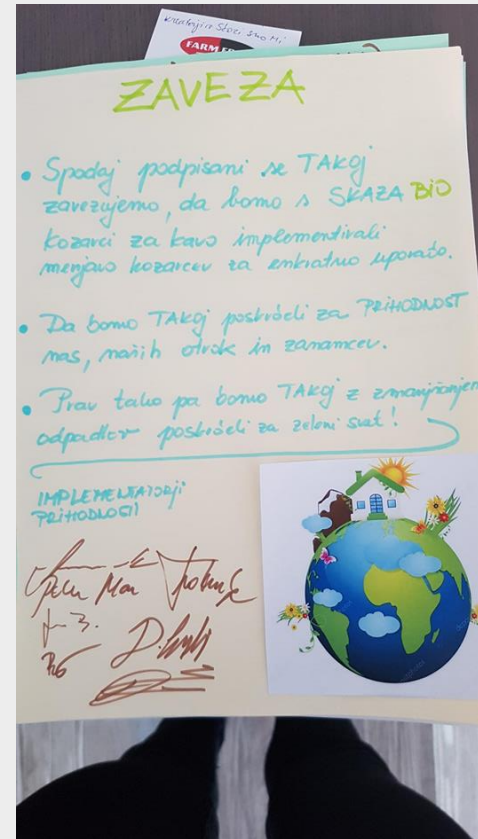 kreativjo Stozi Smo Mi
FARM
ZAVEZA
• Spodaj podpisani se TAKOJ
zavezujemo, da bomo s SKAZA BIO
kozarci za kavo implementirali
menjavo kozarcev za enkratno uporabo.
• Da bomo TAKOJ poskrbeli za PRIHODNOST
nas, naših otrok in zanamcev.
• Prav tako pa bomo TAKOJ z zmanjšanjem
odpadkov poskrbeli za zeleni svet!
IMPLEMENTATORJI
PRIHODNOSTI